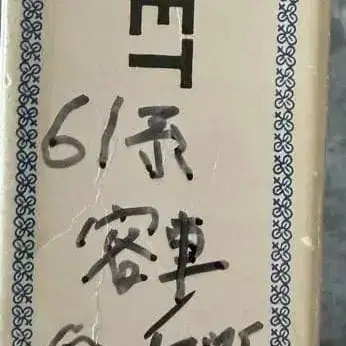 ET
61系
客車